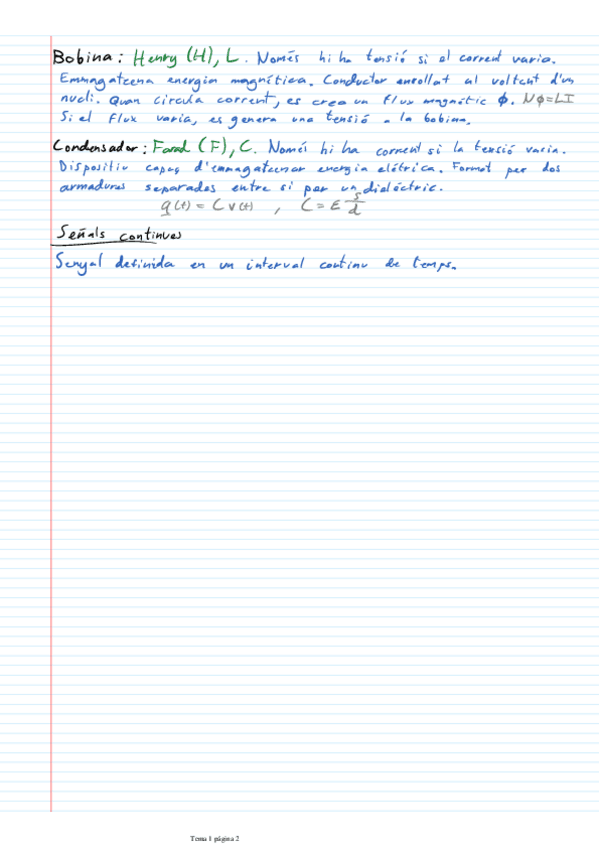 Bobina: Henry (H), L. Només hi ha tensió si el corrent varia.
Emmagatzena energia magnètica. Conductor enrollat al voltant d'un
nucli. Quan circula corrent, es crea un flux magnétic ϕ. Nϕ=LI
Si el flux varia, es genera una tensió a la bobina.
Condensador: Farad (F), C. Només hi ha corrent si la tensió varia.
Dispositiu capaç d'emmagatzenar energia elétrica. Format per dos
armadures separades entre si per un dielèctric.
q(t) = C v(t) , C = ε s/d
Señals continues
Senyal definida en un interval continu de temps.
Tema 1 página 2